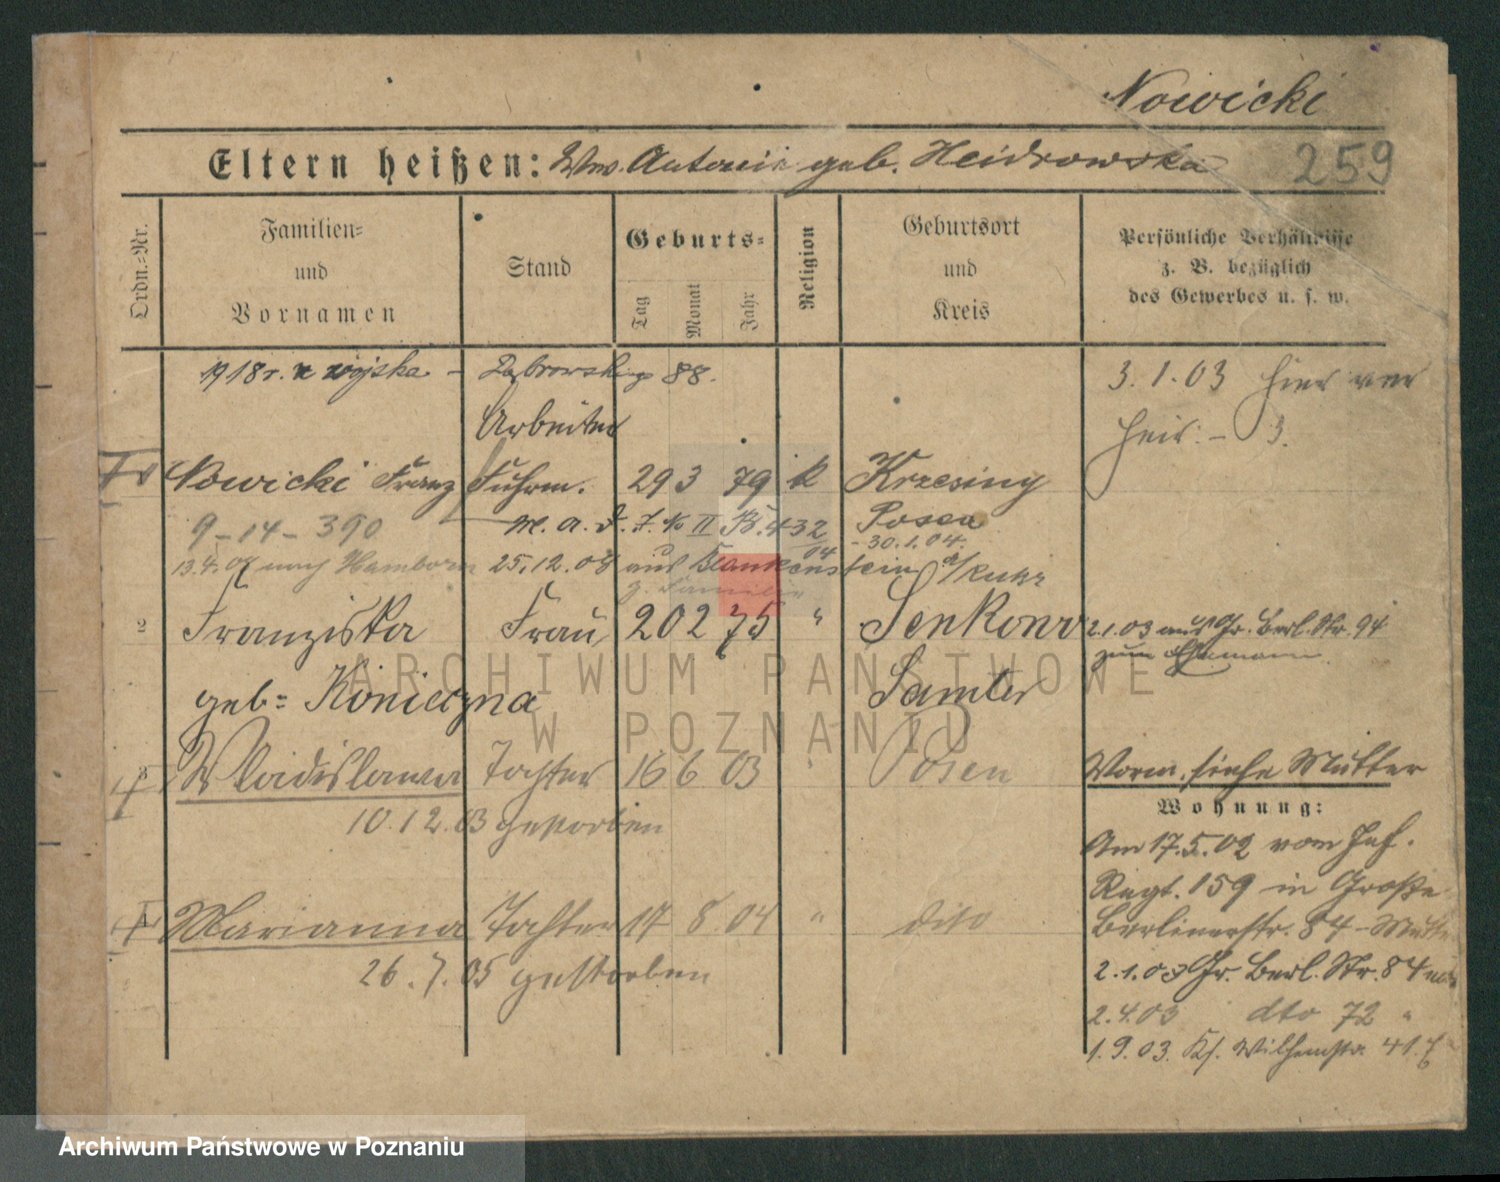 Nowicki
Eltern heißen: Ww. Antonie geb. Heidrowska
259
Ordn.-Nr.
Familien-
und
Vornamen
Stand
Geburts-
Tag
Monat
Jahr
Religion
Geburtsort
und
Kreis
Persönliche Verhältnisse
z. B. bezüglich
des Gewerbes u. s. w.
1918 r. z wojska - Dąbrowskiego 88.
3.1.03 hier ver
heir. - 3.
Arbeiter
Nowicki Franz Fuhrm. 29 3 79 k Krzesiny
9-14-390
Posen
13.4.09 nach Hamborn 25.12.08 aus Blankenstein a/Ruhr
- 30.1.04.
z. Familie
2 Franziska Frau 20 2 75 " Senkowo
2.1.03 aus Gr. Berl. Str. 94
zum Ehemann.
geb= Konieczna Samter
3 Wladislawa Tochter 16 6 03 " Posen
10.12.03 gestorben
Vorm. siehe Mutter
Wohnung:
Am 17.5.02 vom Inf.
Regt. 159 in Große
Berlinerstr. 84 - Mutter
4 Marianna Tochter 17 8 04 " dito
26.7.05 gestorben
2.1.03 Gr. Berl. Str. 84
2.4.03 dto 72 "
1.9.03. Ks. Wilhemstr. 41.
ARCHIWUM PAŃSTWOWE
W POZNANIU
Archiwum Państwowe w Poznaniu